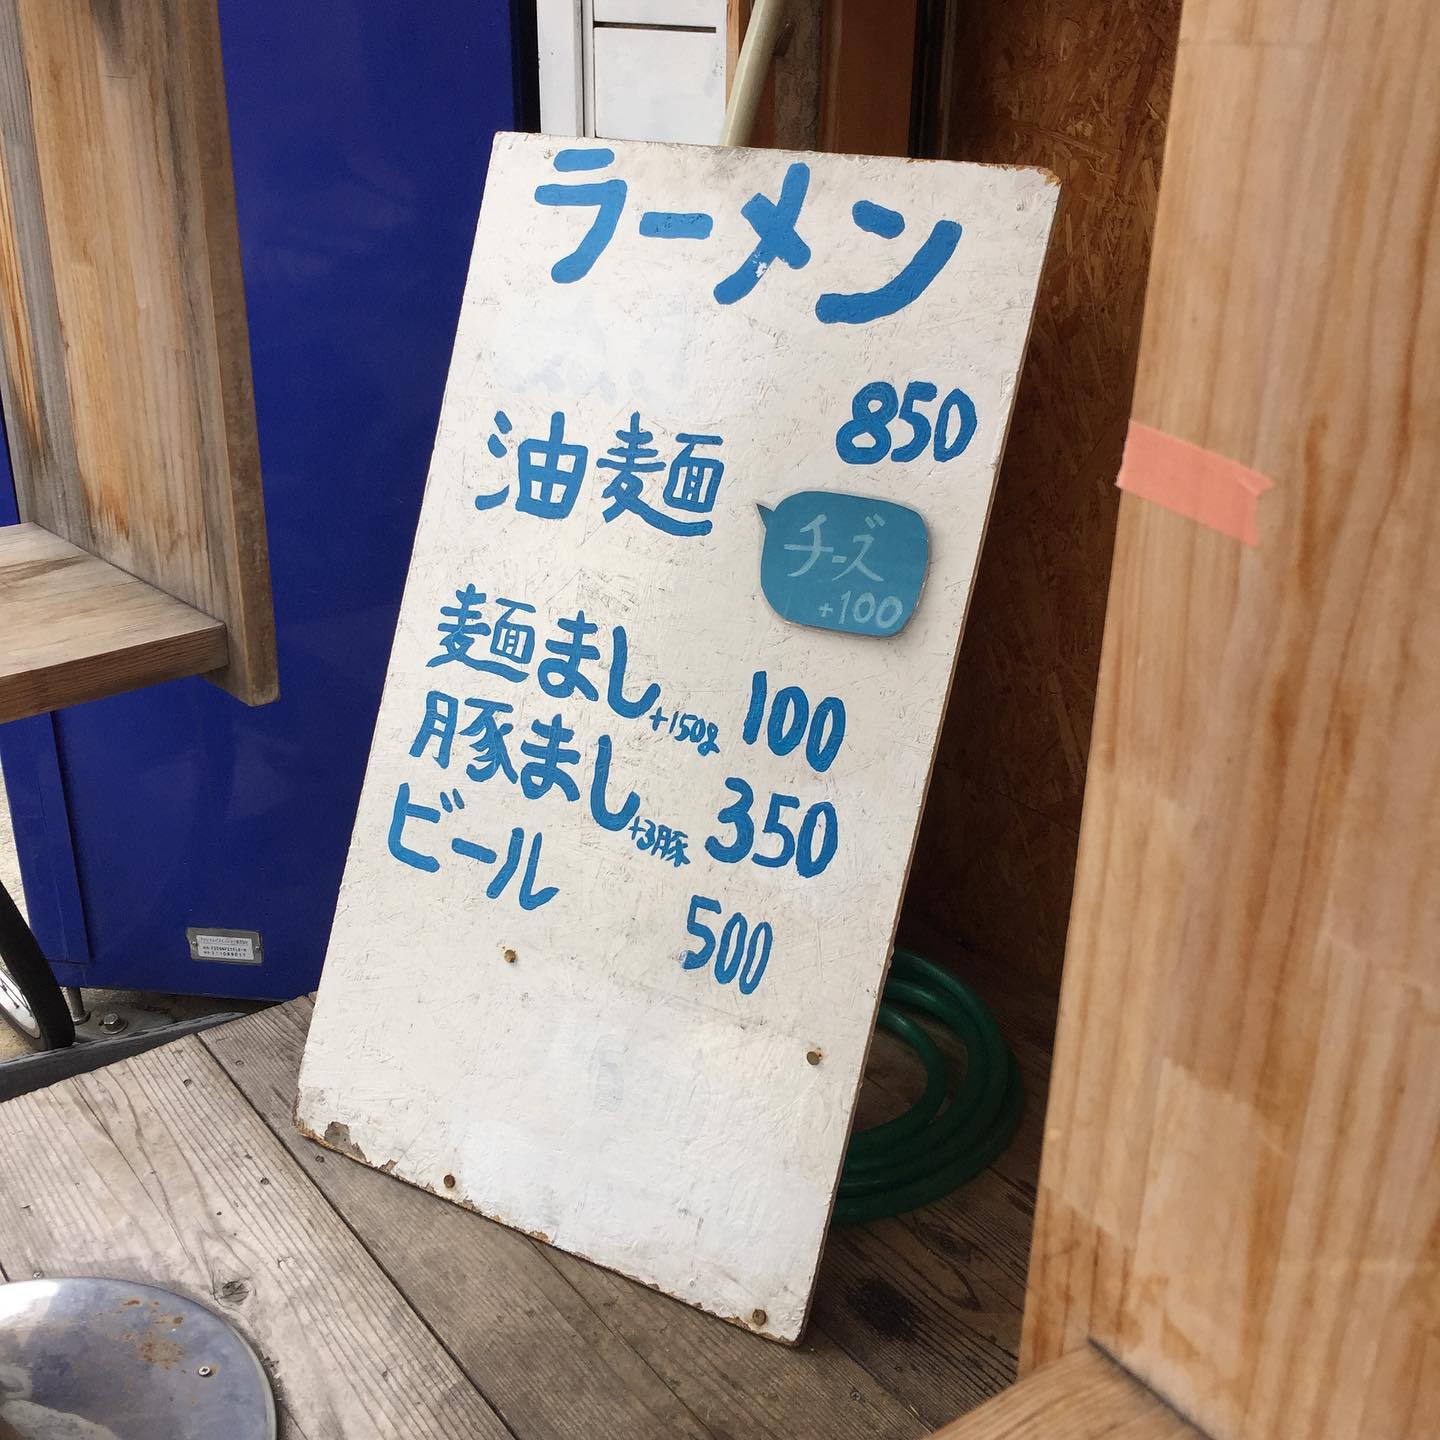 ラーメン
850
油麺
チーズ
+100
麺まし+150g 100
豚まし+3豚 350
ビール 500